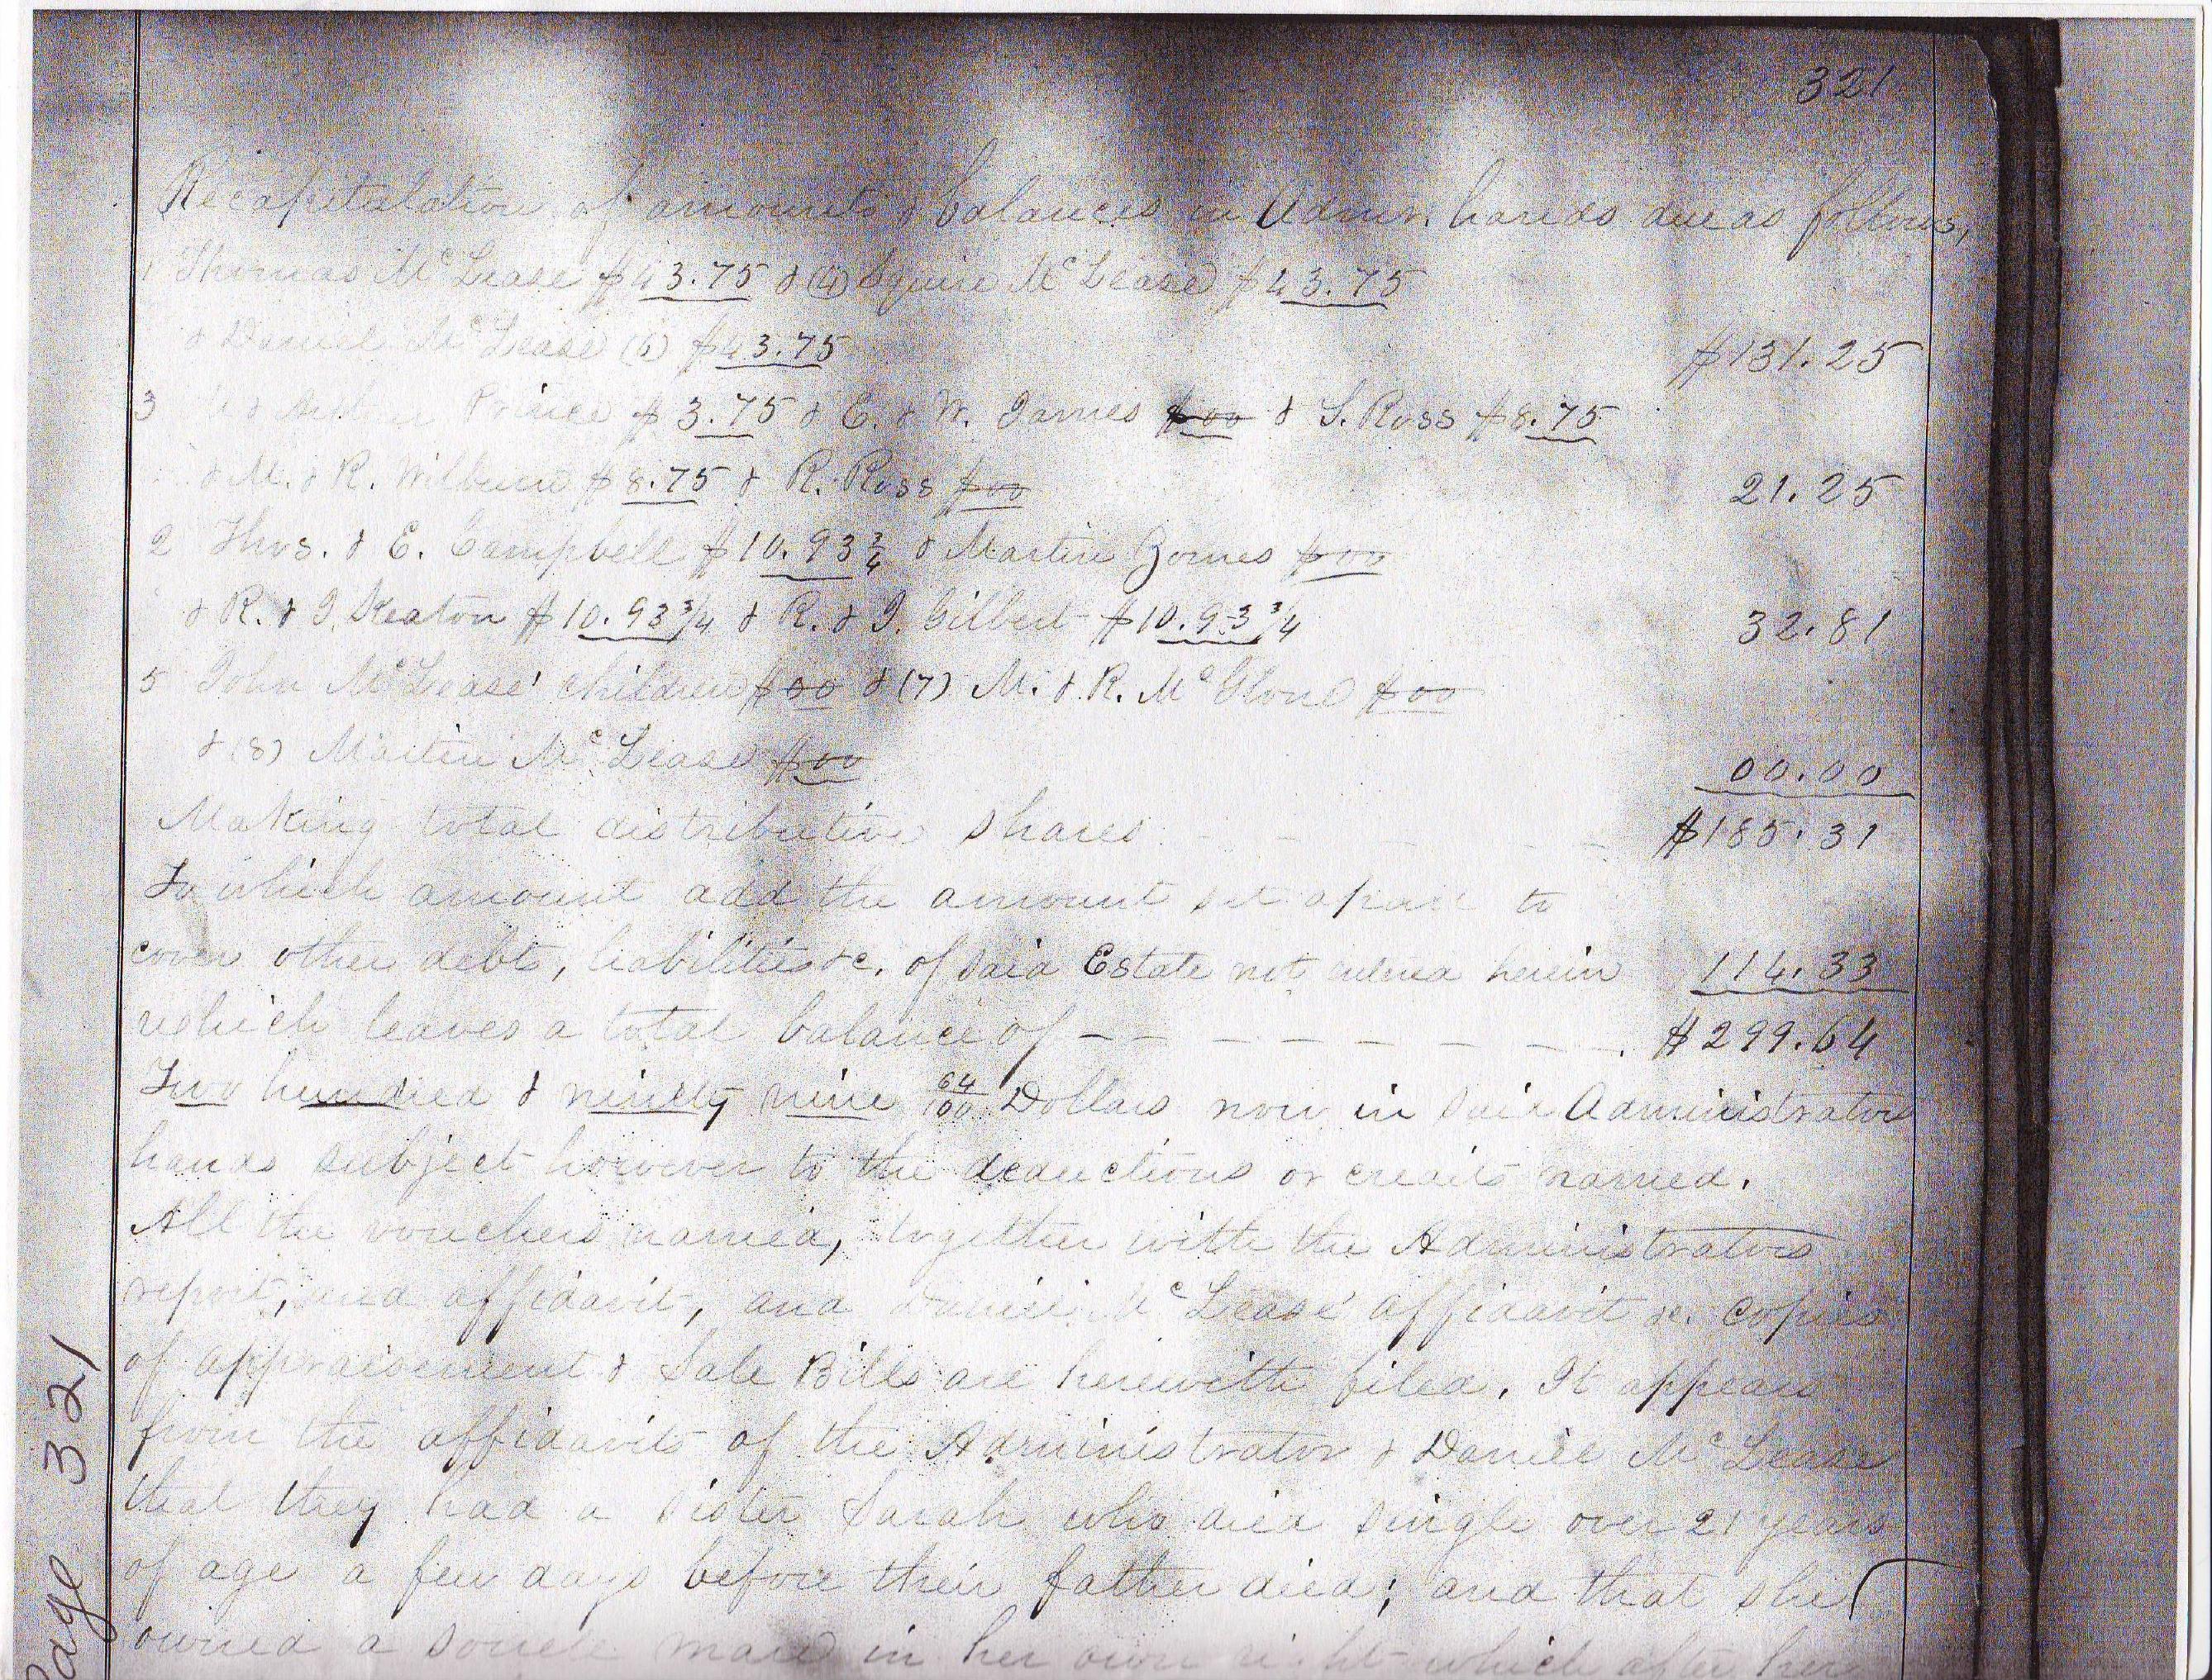 321
Recapitalation of amounts & balances in Admr. hands due as follows,
1 Thomas McLease $43.75 & (4) Squire McLease $43.75
& Daniel McLease (6) $43.75 $131.25
3 Prince $3.75 & E. & W. James $00 & S. Ross $8.75
& M. & R. Wilburn $8.75 & R. Ross $00 21.25
2 Thos. & E. Campbell $10.93 3/4 & Martin Zornes $00
& R. & J. Keaton $10.93 3/4 & R. & J. Gilbert $10.93 3/4 32.81
5 John McLease' children $00 & (7) M. & R. McGlone $00
& (8) Martin McLease $00 00.00
Making total distributive shares - - - - $185.31
To which amount add the amount set apart to
cover other debts, liabilities &c. of said Estate not herein 114.33
which leaves a total balance of - - - - - - - - $299.64
Two hundred & ninety nine 64/100 Dollars now in said Administrators
hands subject however to the deductions or credits named.
All the vouchers named, together with the Administrators
report, and affidavit, and Daniel McLease' affidavit &c. copies
of appraisement & Sale Bills are herewith filed. It appears
from the affidavits of the Administrator & Daniel McLease
that they had a sister Sarah who died single over 21 years
of age a few days before their father died; and that she
owned a sorrel mare in her own right which after her
Page 321